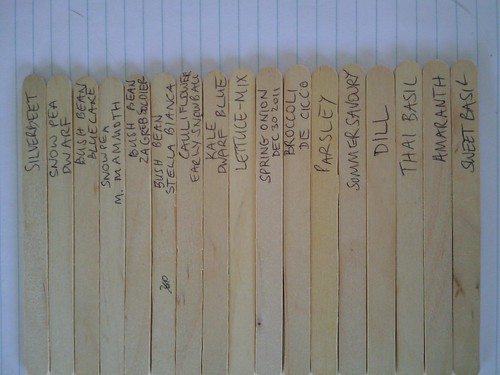 SILVERBEET
SNOW PEA
DWARF
BUSH BEAN
BLUE LAKE
SNOWPEA
M. MAMMOTH
BUSH BEAN
ZAGREB SOLDIER
BUSH BEAN
STELLA BIANCA
CAULIFLOWER
EARLY SNOWBALL
KALE
DWARF BLUE
LETTUCE-MIX
SPRING ONION
DEC 30 2011
BROCCOLI
DE CICCO
PARSLEY
SUMMER SAVOURY
DILL
THAI BASIL
AMARANTH
SWEET BASIL